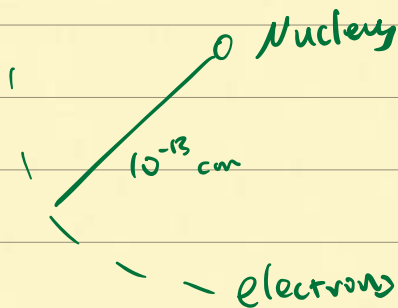 Nucleus
10^-13 cm
electrons